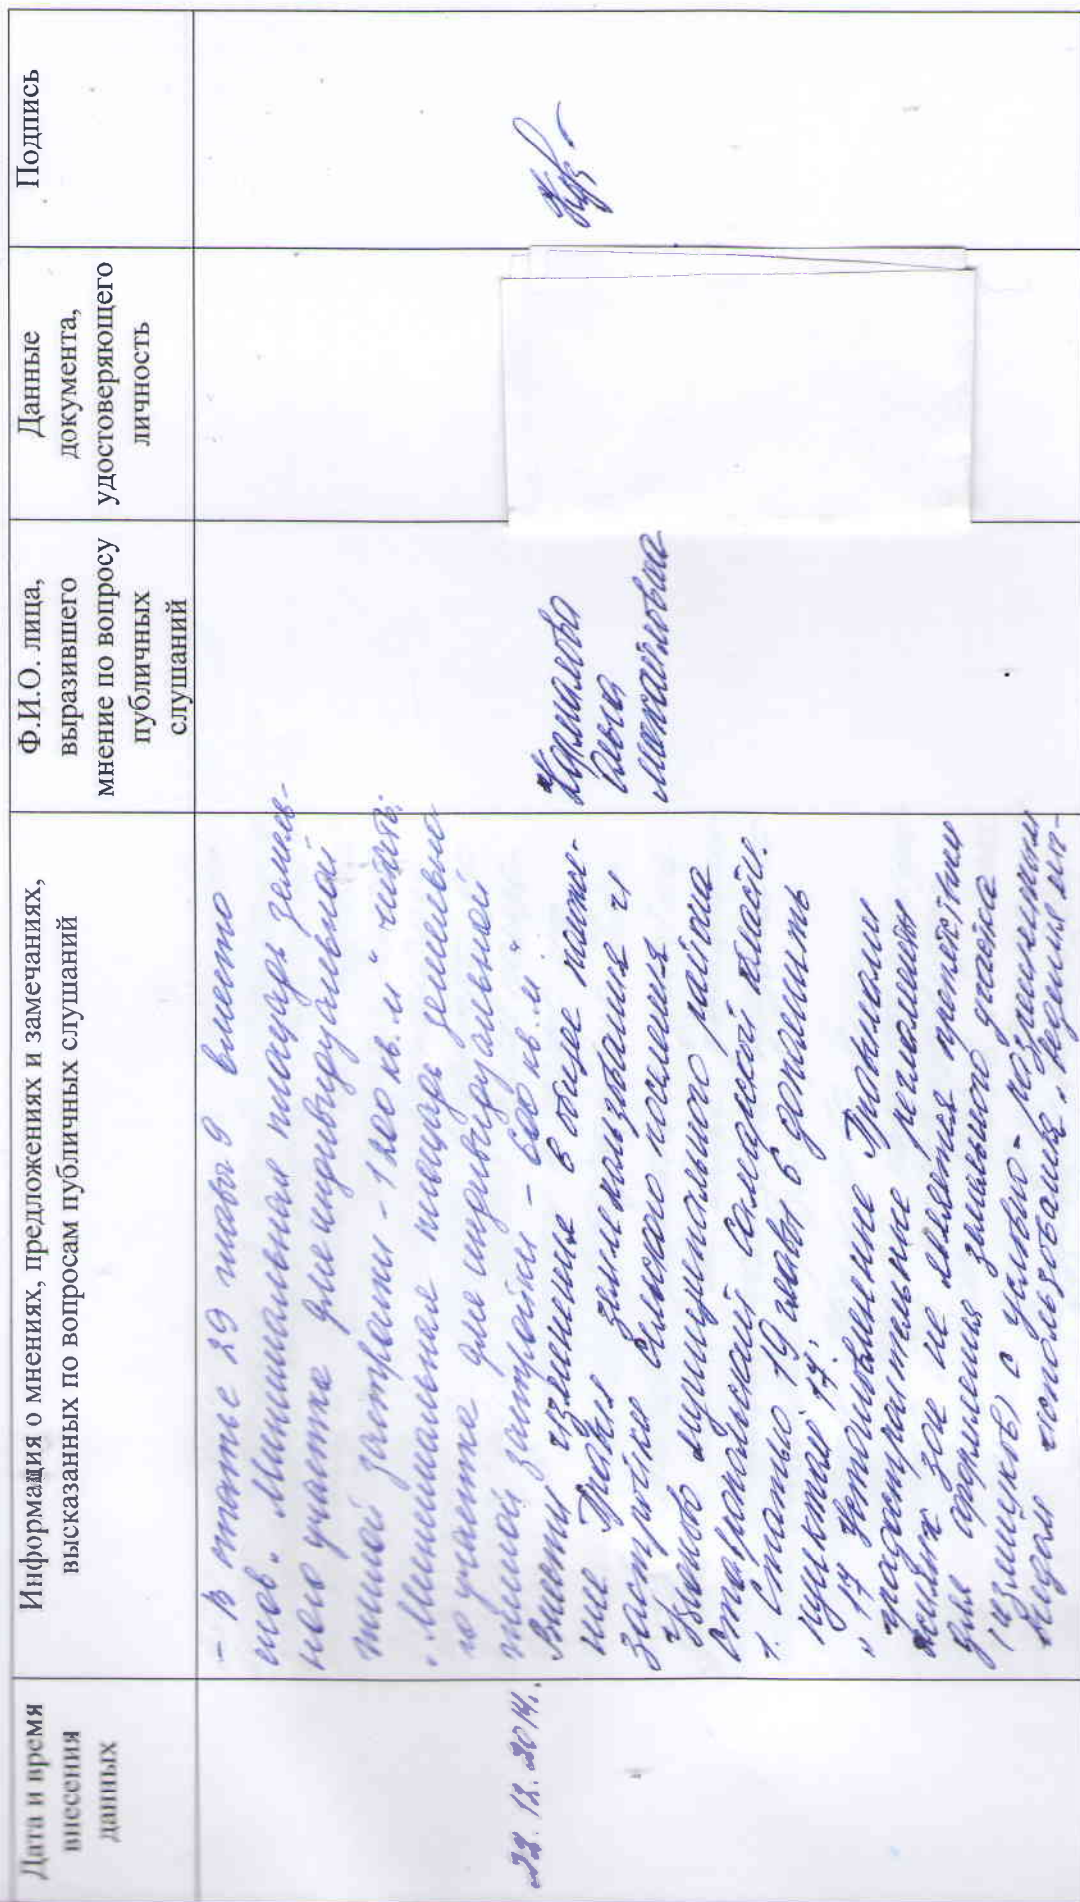 Дата и время
внесения
данных
Информация о мнениях, предложениях и замечаниях,
высказанных по вопросам публичных слушаний
Ф.И.О. лица,
выразившего
мнение по вопросу
публичных
слушаний
Данные
документа,
удостоверяющего
личность
Подпись
- В статье 29 главы 9 вместо
Минимальная площадь земель-
ного участка для индивидуальной
жилой застройки - 1200 кв.м" читать:
"Минимальная площадь земельно
го участка для индивидуальной
жилой застройки - 600 кв.м."
12.2014.
Внести изменения в общие положе-
ние Правил землепользования и
застройки сельского поселения
Узюково муниципального района
Ставропольский Самарской области.
1. Статью 19 главы 6 дополнить
пунктом 17:
"17 Установленные Правилами
градостроительные регламенты
зон не является препятствии
для оформления земельного участка
с условно-разрешенным
видом использования, ведения ли-
Михайловна